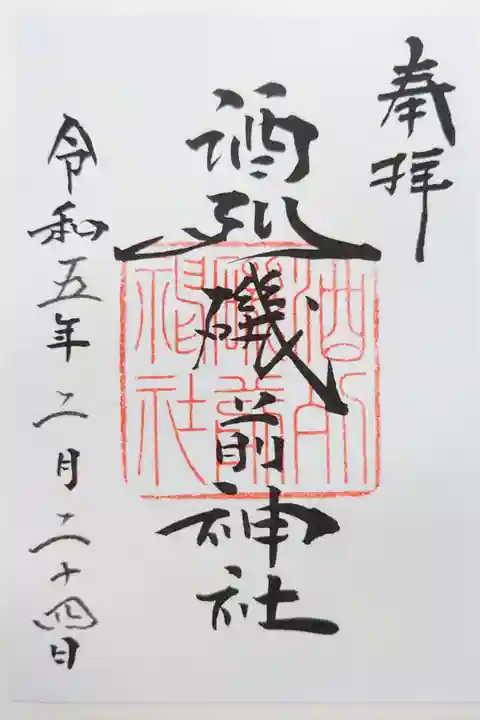 奉拝
酒列磯前神社
酒列
磯前
神社
令和五年二月二十四日